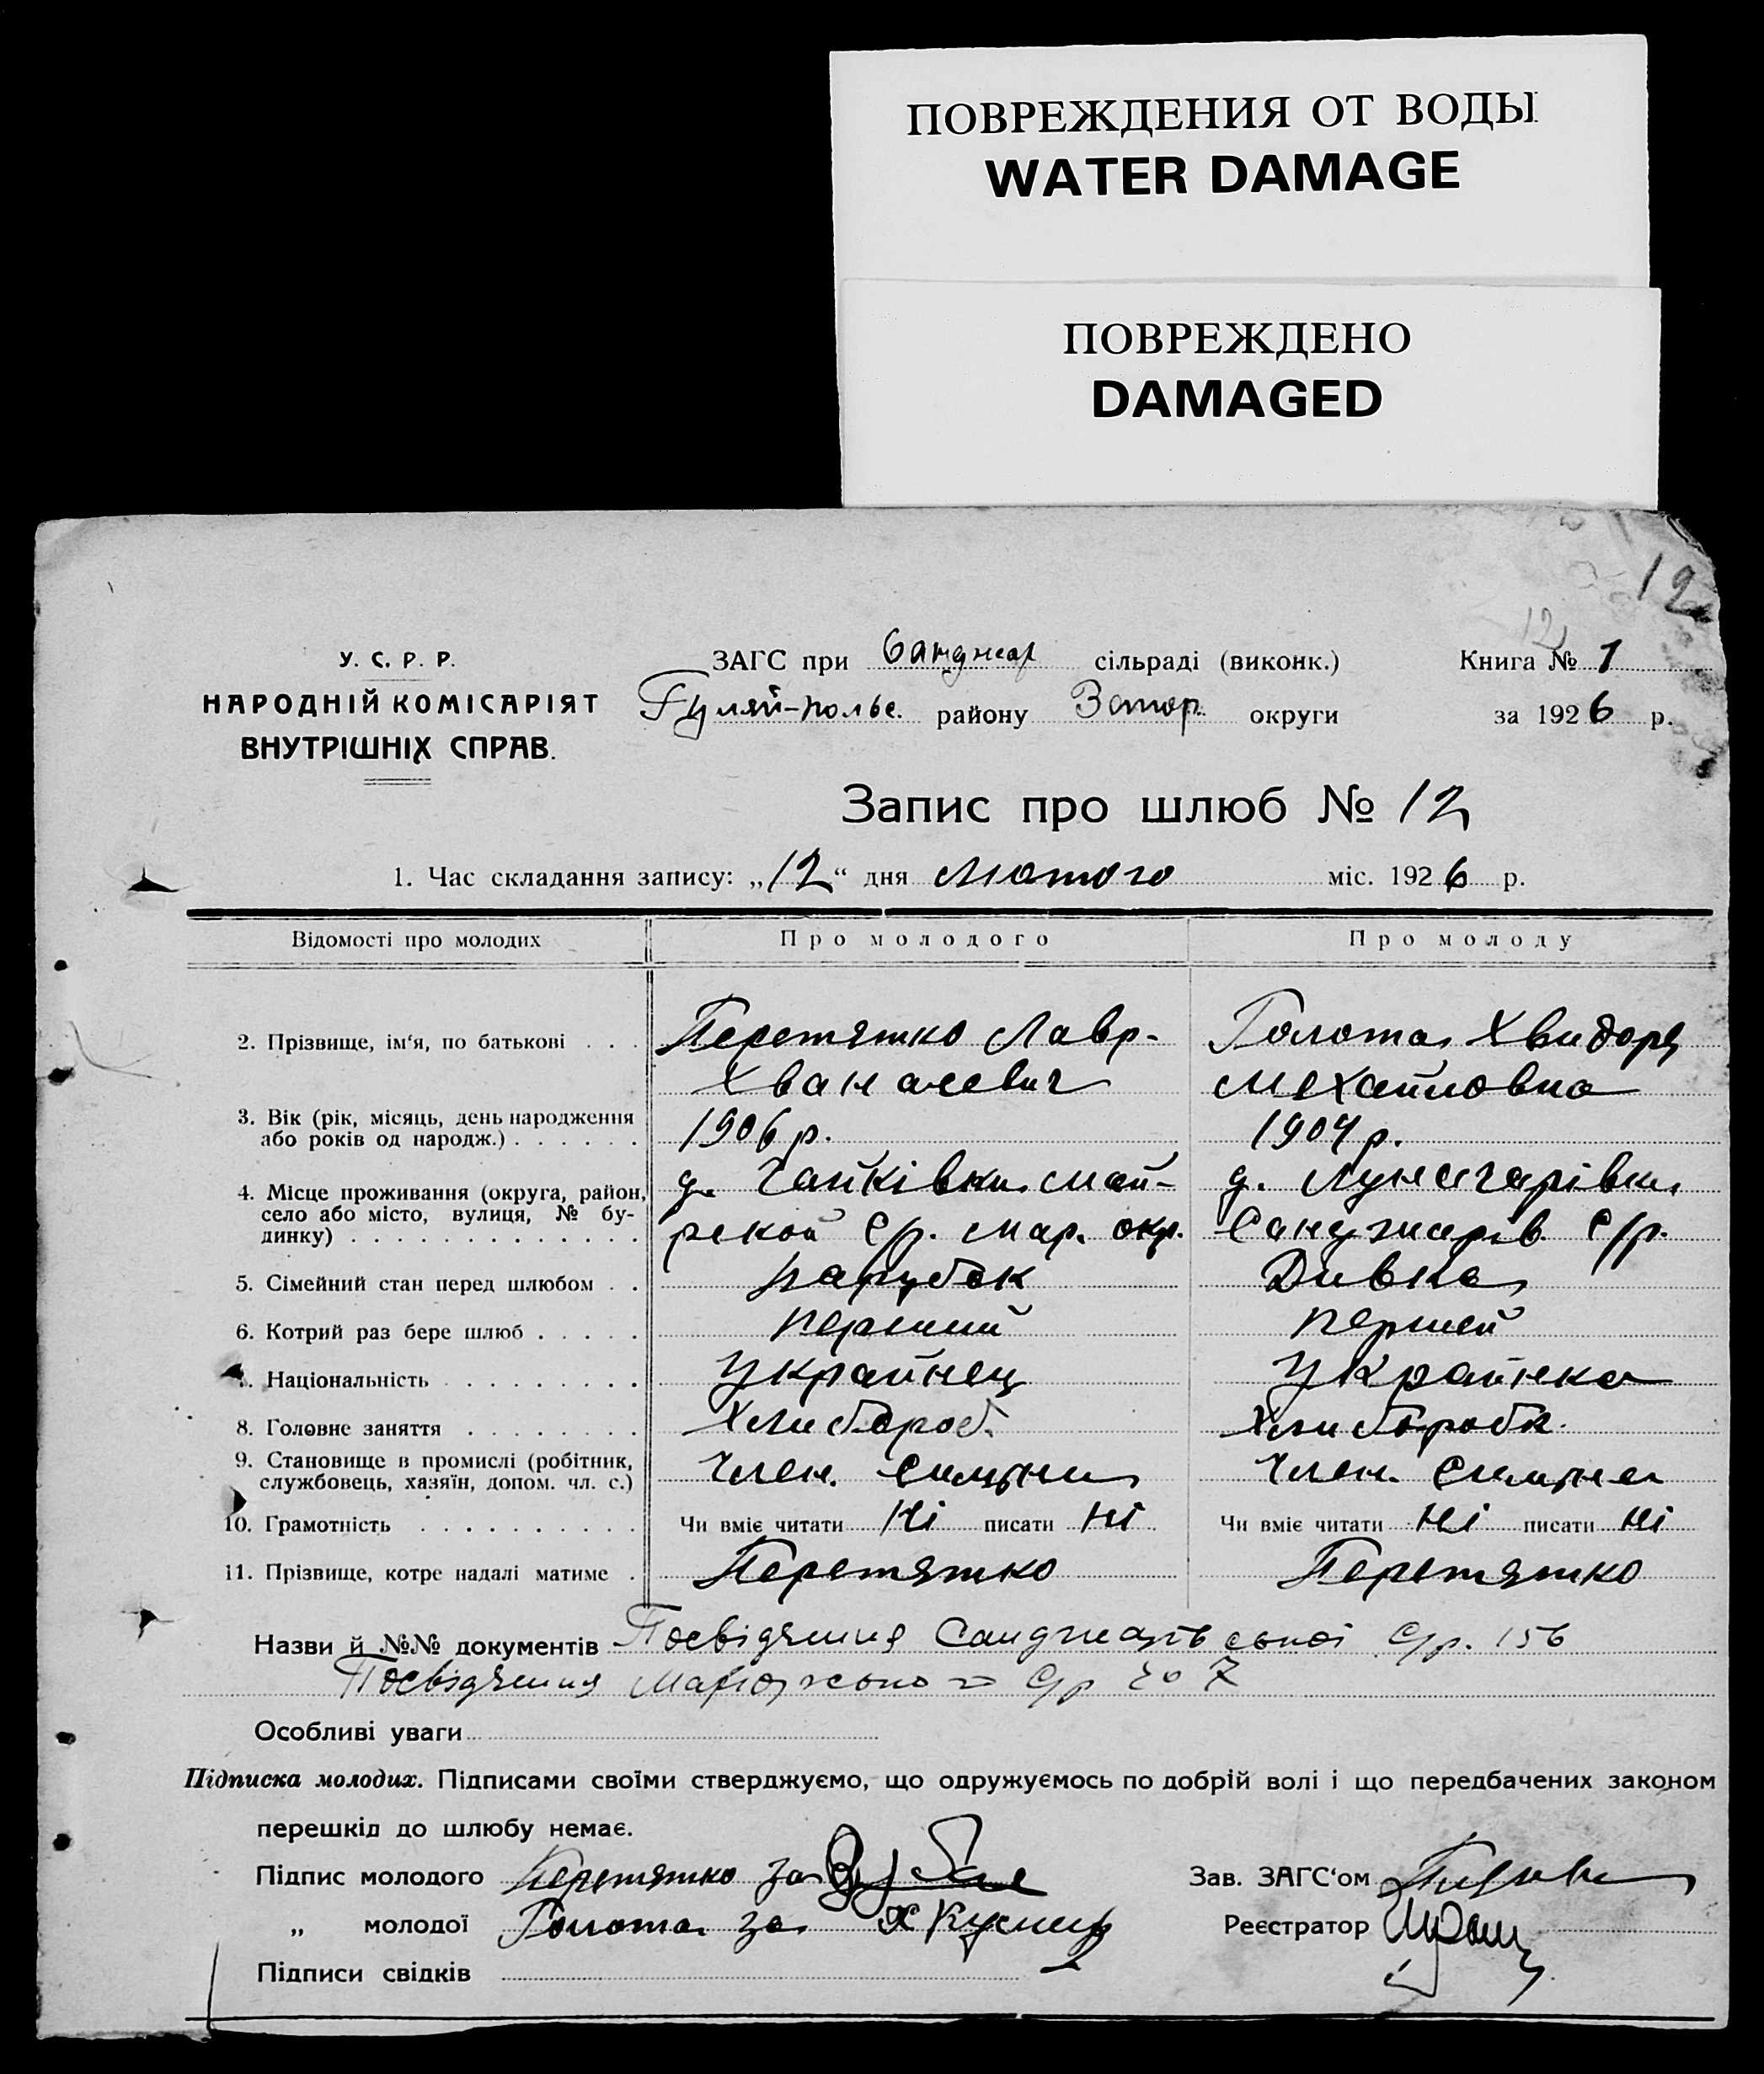 ПОВРЕЖДЕНИЯ ОТ ВОДЫ
WATER DAMAGE
ПОВРЕЖДЕНО
DAMAGED
12
12
У. С. Р. Р.
НАРОДНІЙ КОМІСАРІЯТ
ВНУТРІШНІХ СПРАВ.
ЗАГС при Санджар сільраді (виконк.) Книга № 1
Гуляй-польс. району Запор. округи за 1926 р.
Запис про шлюб № 12
1. Час складання запису: „12“ дня Лютого міс. 1926 р.
Відомості про молодих Про молодого Про молоду
2. Прізвище, ім‘я, по батькові . . . Перетятко Лавр- Голота Хвидора
Хванасевич Мехайловна
3. Вік (рік, місяць, день народження
або років од народж.) . . . . . . 1906 р. 1907 р.
4. Місце проживання (округа, район, д. Чайківки май- д. Луначарівки
село або місто, вулиця, № бу-
динку) . . . . . . . . . . . . . рской С/р. Мар. окр. Санджарів. С/р.
5. Сімейний стан перед шлюбом . . парубок Дивка
6. Котрий раз бере шлюб . . . . . перший першей
7. Національність . . . . . . . . . Украйнец Украйнка
8. Головне заняття . . . . . . . . Хлибороб. Хлиборобк.
9. Становище в промислі (робітник,
службовець, хазяїн, допом. чл. с.) Член. симьи Член. симьи
10. Грамотність . . . . . . . . . . Чи вміє читати Ні писати Ні Чи вміє читати Ні писати Ні
11. Прізвище, котре надалі матиме . Перетятко Перетятко
Назви й №№ документів Посвідчення Санджарівської С/р. 156
Посвідчення С/р 7
Особливі уваги
Підписка молодих. Підписами своїми стверджуємо, що одружуємось по добрій волі і що передбачених законом
перешкід до шлюбу немає.
Підпис молодого Перетятко за Зав. ЗАГС‘ом
„ молодої Голота за Х Кузнец Реєстратор
Підписи свідків